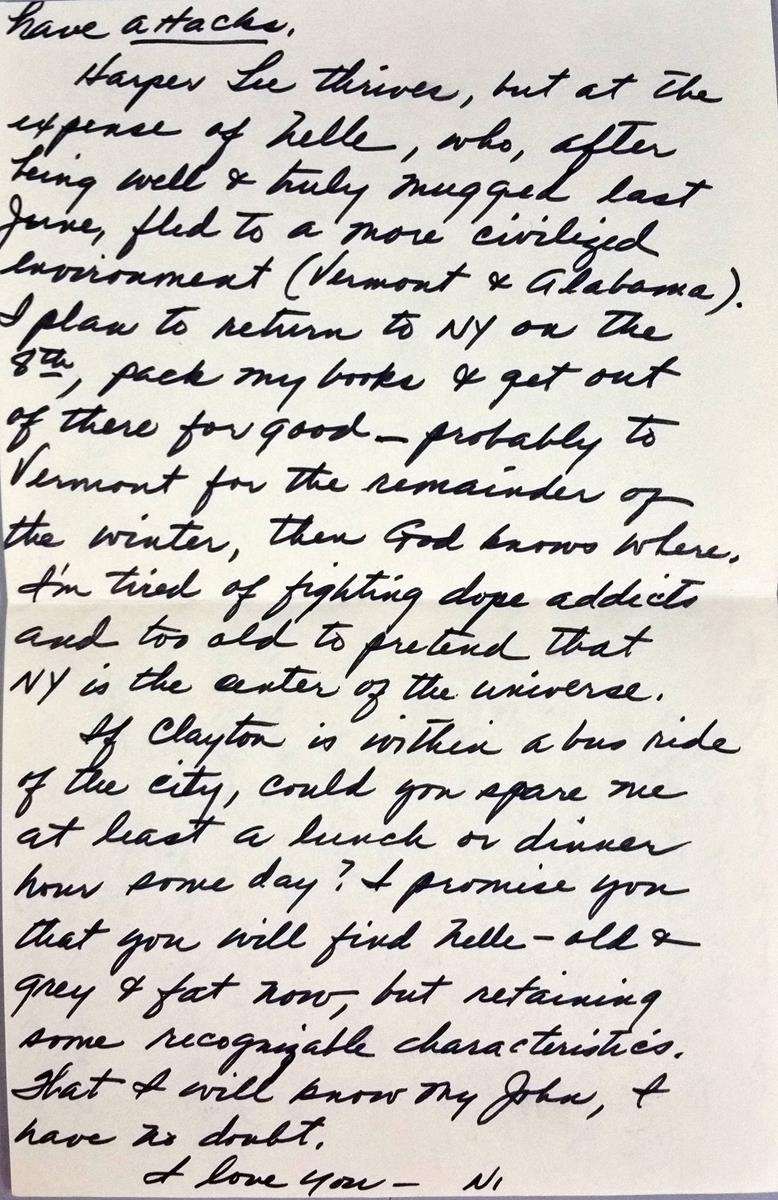 have attacks.
Harper Lee thrives, but at the
expense of Nelle, who, after
being well & truly mugged last
June, fled to a more civilized
environment (Vermont & Alabama).
I plan to return to NY on the
8th, pack my books & get out
of there for good — probably to
Vermont for the remainder of
the winter, then God knows where.
I'm tired of fighting dope addicts
and too old to pretend that
NY is the center of the universe.
If Clayton is within a bus ride
of the city, could you spare me
at least a lunch or dinner
hour some day? I promise you
that you will find Nelle — old &
grey & fat now, but retaining
some recognizable characteristics.
That I will know my John, I
have no doubt.
I love you — N